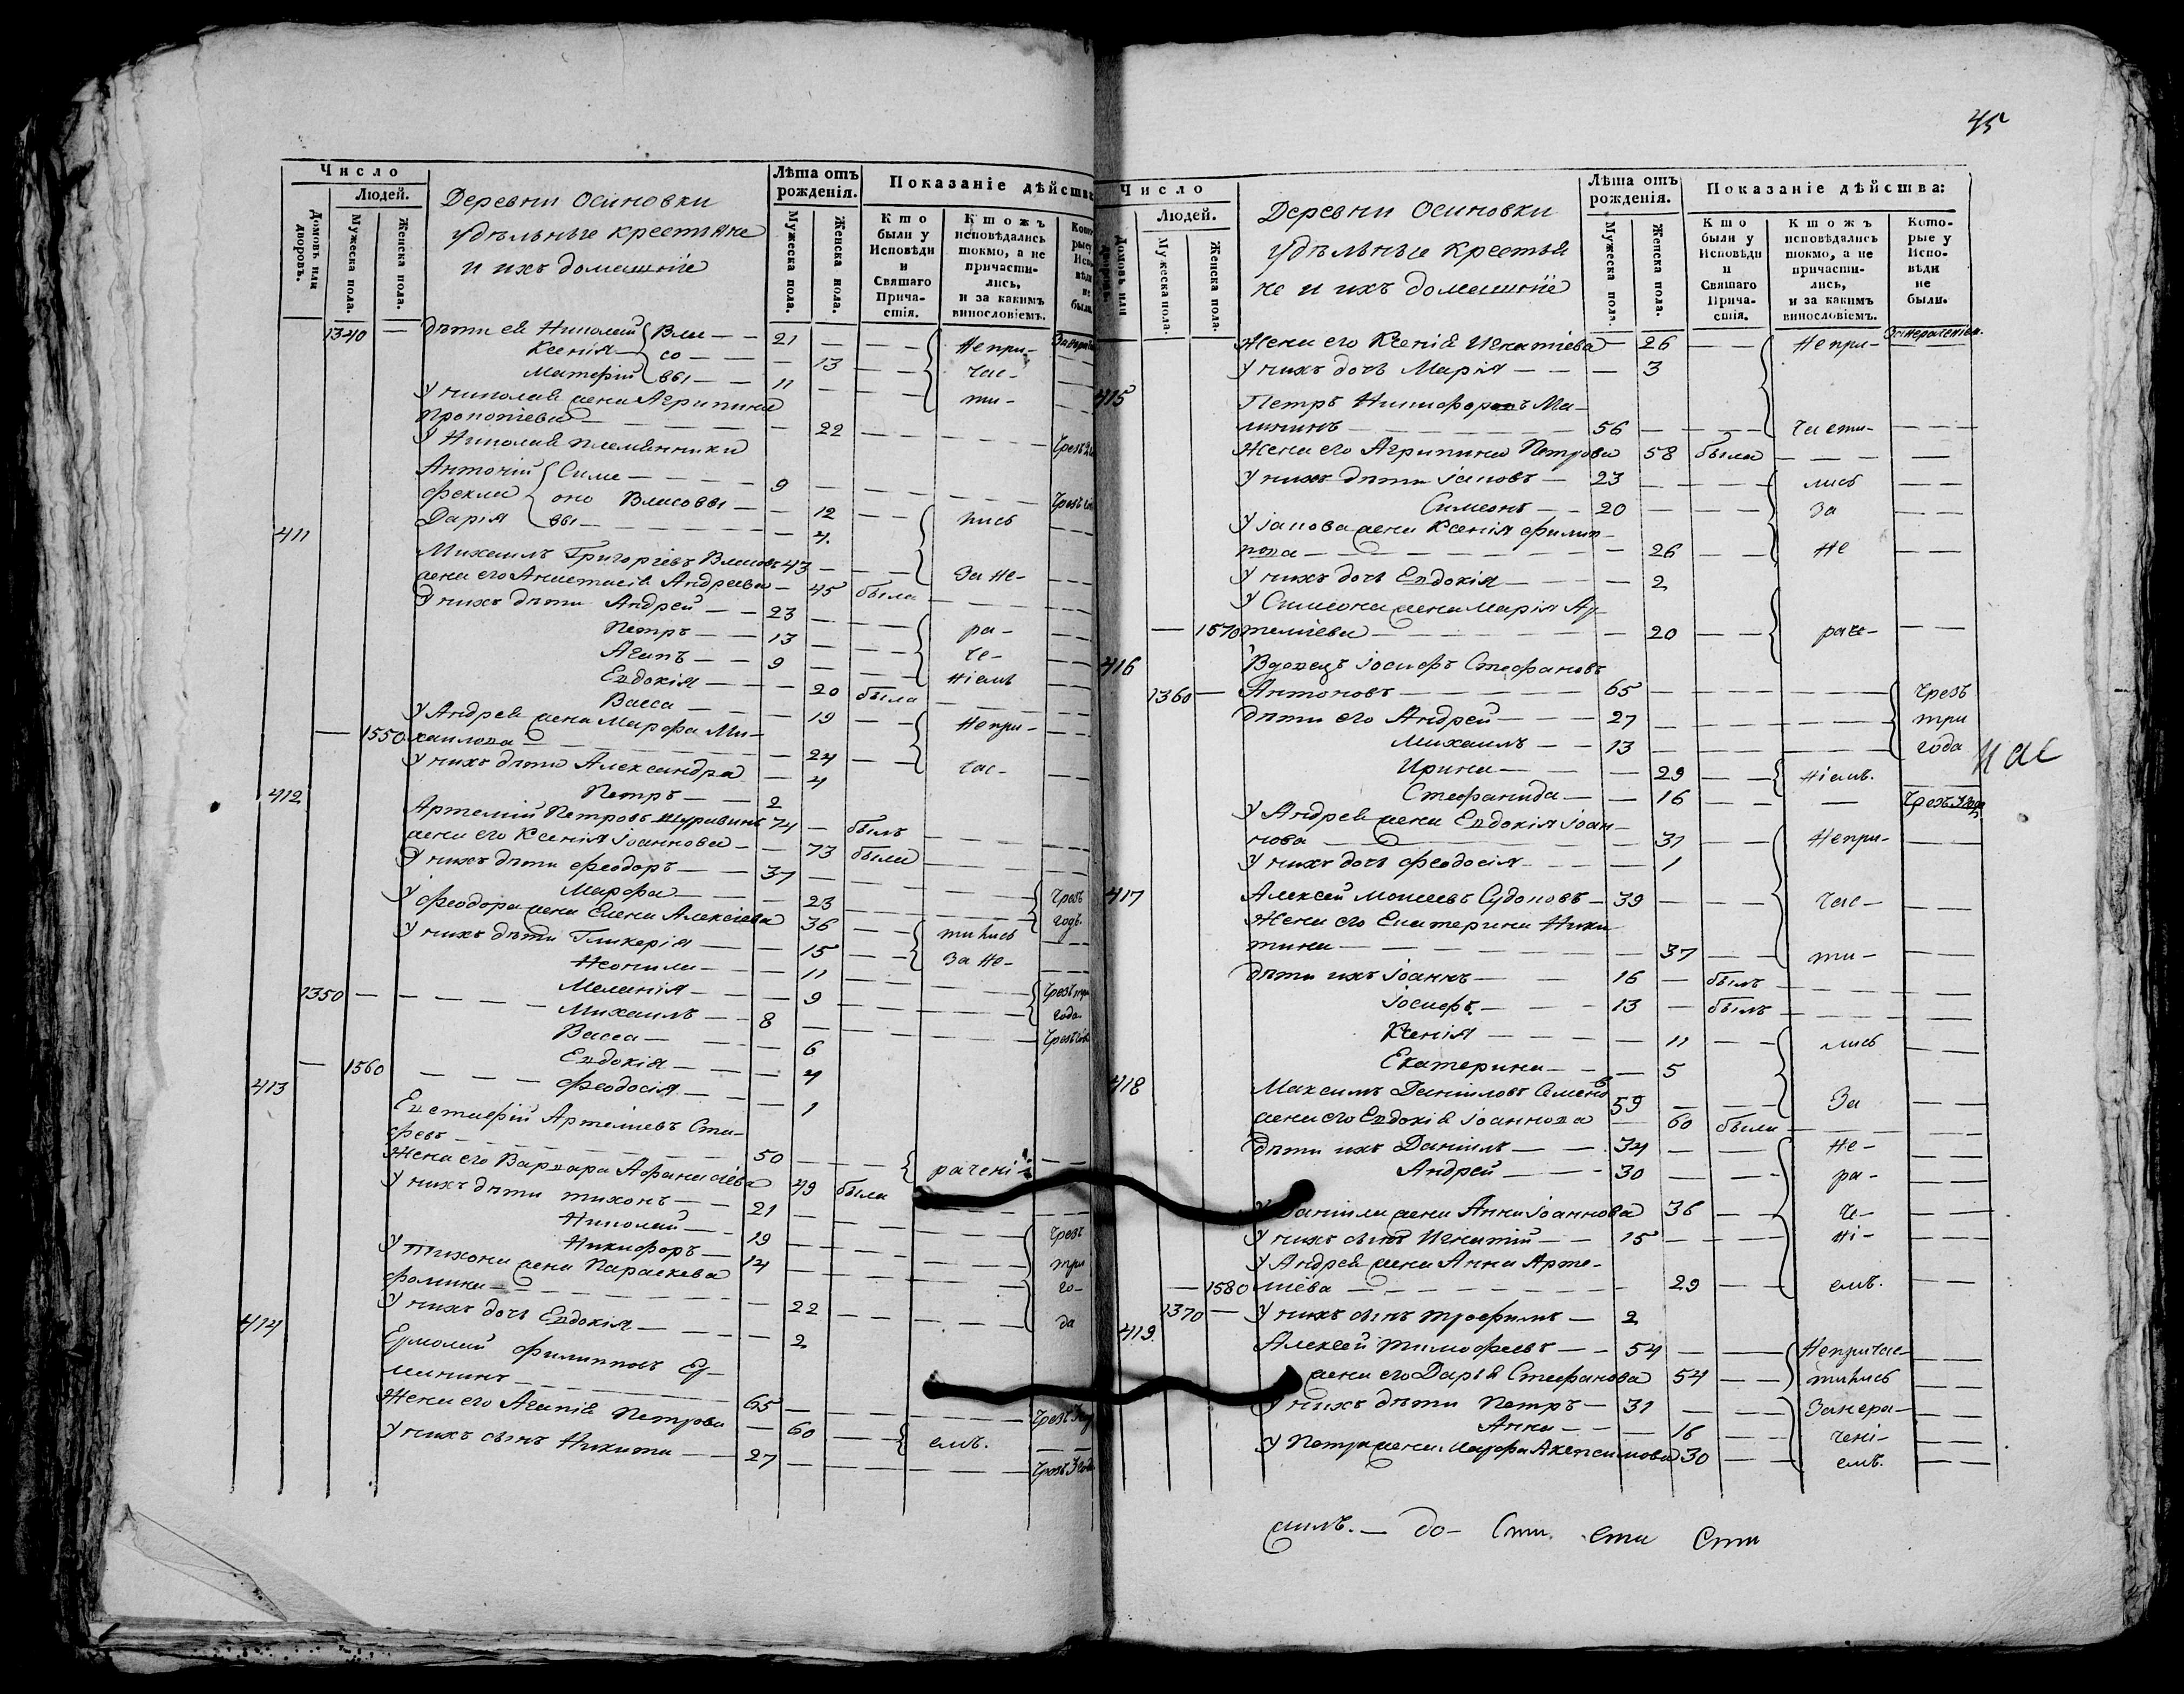 Число
Людей.
Домовъ или дворовъ.
Мужеска пола.
Женска пола.
Деревни Осиновки
удѣльные крестьяне
и ихъ домашніе
Лѣта отъ рожденія.
Мужеска пола.
Женска пола.
Показаніе дѣйства
Кто были у Исповѣди и Святаго Причастія.
Ктожъ исповѣдались токмо, а не причастились, и за какимъ винословіемъ.
1340 — дѣти ея Николай Вла — — 21 Непри-
Ксенія со — — 13 час-
Матѳій вы — — 11 ти-
У Николая жена Агрипина
Прокопіева — 22
У Николая племянники
Антоній Симе — 9
Ѳекла оно Власовы — 12 лись
Дарія вы — 4
411
Михаилъ Григоріевъ Власовъ 43 За не-
жена его Анастасія Андреева — 45 была
У нихъ дѣти Андрей — — 23
Петръ — — 13 ра-
Агапъ — — 9 че-
Евдокія — — 20 была ніемъ
Васса — 19
У Андрея жена Марѳа Ми- Непри-
— 1550 хаилова — 24
У нихъ дѣти Александра — 4 час-
Петръ — — 2
412
Артемій Петровъ 74 — былъ
жена его Ксенія Іоаннова — 73 была
У нихъ дѣти Ѳеодоръ — — 37
Марѳа — 23 Чрезъ
У Ѳеодора жена Елена Алексіева 36 годъ
У нихъ дѣти Гликерія — 15 тились
Неонила — 11 За не-
1350 — Меланія — 9 Чрезъ три
Михаилъ — 8 года
Васса — 6
— 1560 Евдокія — 4
Ѳеодосія — 1
413
Евстаѳій Артеміевъ Ста-
фѣевъ — 50 раченi-
Жена его Варвара Аѳанасіева 49 была
У нихъ дѣти Тихонъ — 21
Николай — 19 Чрезъ
Никифоръ — 14 три
У Тихона жена Параскева го-
Ѳомина — 22
У нихъ дочь Евдокія — 2 да
414
Ермолай Филипповъ Ер-
милинъ — 65
Жена его Агапія Петрова — 60 емъ.
У нихъ сынъ Никита — 27 Чрезъ 3 года
45
Число
Людей.
Домовъ или дворовъ.
Мужеска пола.
Женска пола.
Деревни Осиновки
удѣльные крестья
не и ихъ домашніе
Лѣта отъ рожденія.
Мужеска пола.
Женска пола.
Показаніе дѣйства:
Кто были у Исповѣди и Святаго Причастія.
Ктожъ исповѣдались токмо, а не причастились, и за какимъ винословіемъ.
Которые у Исповѣди не были.
Жена его Ксенія Игнатіева — 26 Непри- Занераченіем.
У нихъ дочь Марія — — — 3
415
Петръ Никифоровъ Ма-
лининъ — 56 части-
Жена его Агрипина Петрова 58 была
У нихъ дѣти Іаковъ — 23 лись
Симеонъ — — 20 За
У Іакова жена Ксенія Филип-
пова — 26 не
У нихъ дочь Евдокія — 2
У Симеона жена Марія Ар-
— 1570 темиева — 20 раче-
416
Вдовецъ Іосифъ Стефановъ
1360 — Антоновъ — 65 Чрезъ
дѣти его Андрей — — 27 три
Михаилъ — — 13 года
Ирина — — 29 ніемъ.
Стефанида — — 16
У Андрея жена Евдокія Іоан-
нова — 31 Непри-
У нихъ дочь Ѳеодосія — 1
417
Алексей Моисеевъ Судоковъ — 39 час-
Жена его Екатерина Ники
тина — 37 ти-
дѣти ихъ Іоаннъ — 16 — былъ
Іосифъ. — 13 — былъ
Ксенія — 11 лись
Екатерина — — 5
418
Максимъ Даніиловъ Семено
въ 59 За
жена его Евдокія Іоаннова — 60 была
дѣти ихъ Даніилъ — — 34 не-
Андрей — — 30 ра-
У Даніила жена Анна Іоаннова 36 че-
У нихъ сынъ Игнатій — — 15 ні-
У Андрея жена Анна Арте-
— 1580 миева — 29 емъ.
1370 — У нихъ сынъ Трофимъ — 2
419.
Алексей Тимофеевъ — — 54 Непричас-
жена его Дарья Стефанова 54 тились
У нихъ дѣти Петръ — 31 Занера-
Анна — — 16 чені-
У Петра жена Марфа Акепсимова 30 емъ.